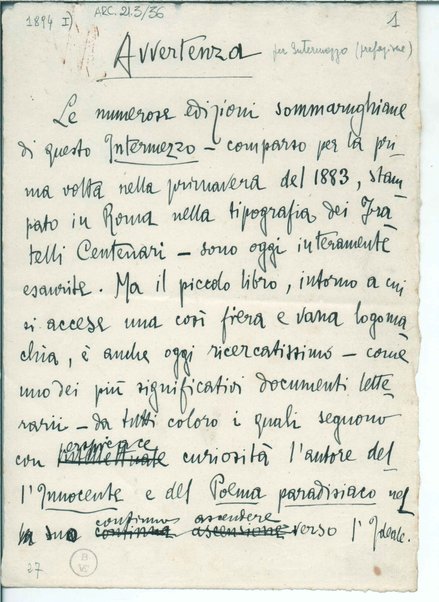 1894 I)
ARC. 21.3/36
1
Avvertenza
per Intermezzo (prefazione)
Le numerose edizioni sommarughiane
di questo Intermezzo – comparso per la pri-
ma volta nella primavera del 1883, stam-
pato in Roma nella tipografia dei Fra-
telli Centenari – sono oggi interamente
esaurite. Ma il piccolo libro, intorno a cui
si accese una così fiera e vana logoma-
chia, è anche oggi ricercatissimo – come
uno dei più significativi documenti lette-
rarii – da tutti coloro i quali seguono
perspicace
con curiosità l'autore del-
l'Innocente e del Poema paradisiaco nel
continuo ascendere
la sua continua ascensione verso l'Ideale.
27